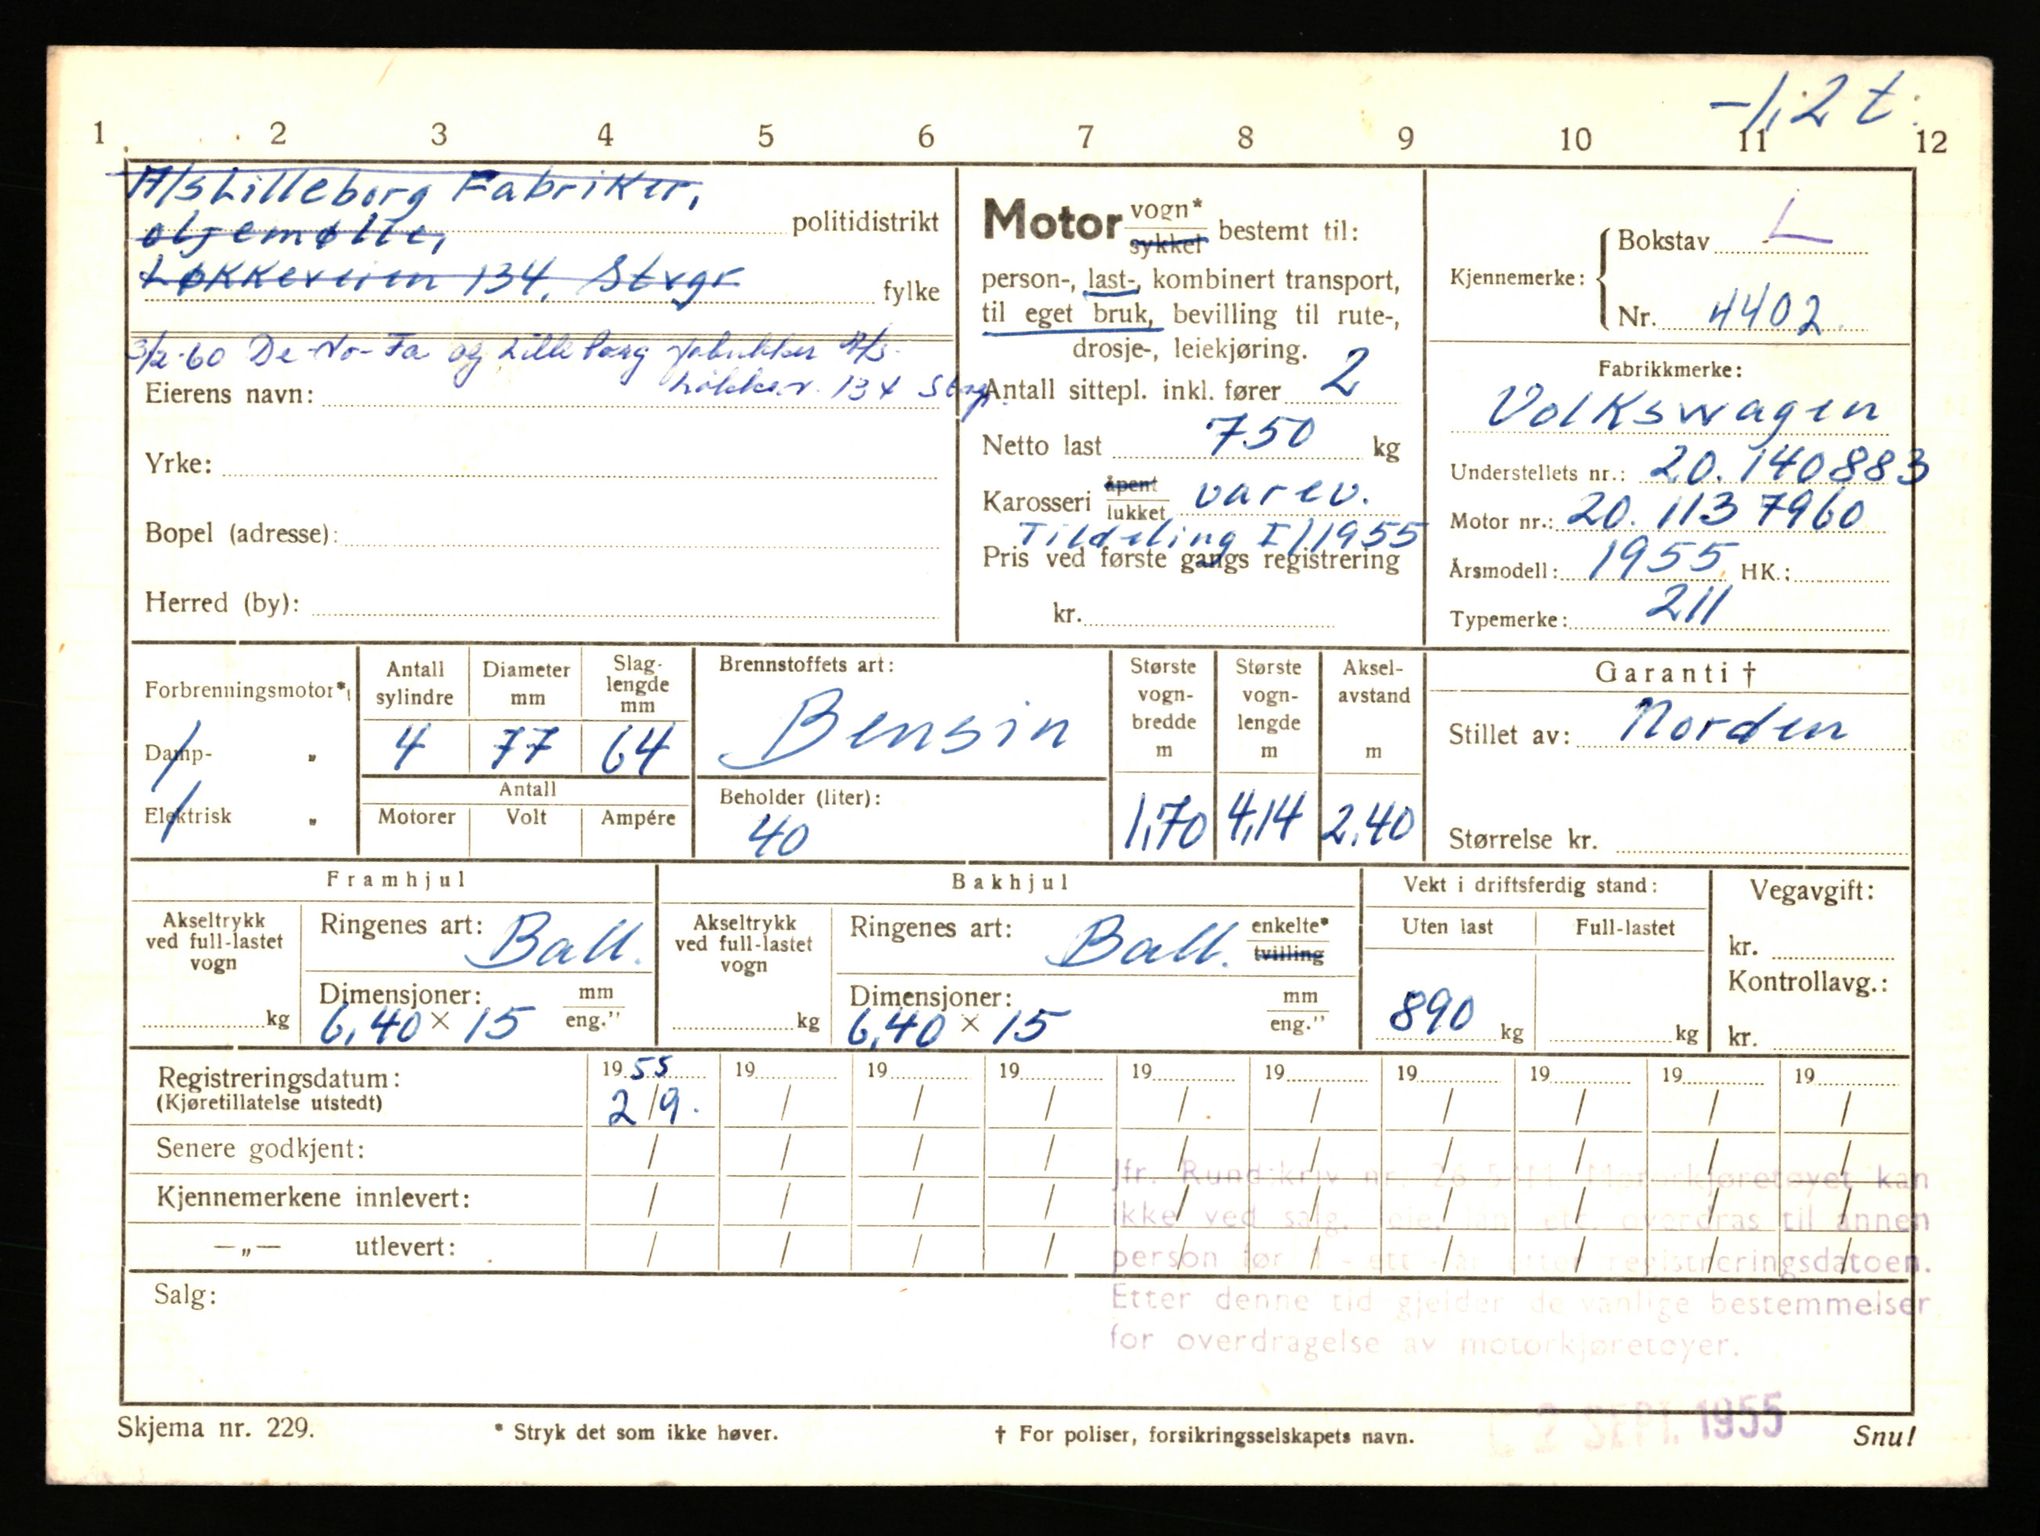 -1,2 t.
1 2 3 4 5 6 7 8 9 10 11 12
A/S Lilleborg Fabriker,
oljemølle, politidistrikt
Løkkeveien 134, Stvgr fylke
3/2-60 De-No-Fa og Lilleborg fabrikker A/S.
Løkkev. 134 Stvgr.
Eierens navn:
Yrke:
Bopel (adresse):
Herred (by):
Motor vogn* sykkel bestemt til:
person-, last-, kombinert transport,
til eget bruk, bevilling til rute-,
drosje-, leiekjøring.
Antall sittepl. inkl. fører 2
Netto last 750 kg
Karosseri åpent lukket varev.
Tildeling I/1955
Pris ved første gangs registrering
kr.
Kjennemerke: Bokstav L
Nr. 4402
Fabrikkmerke:
Volkswagen
Understellets nr.: 20.140883
Motor nr.: 20.1137960
Årsmodell: 1955 HK.:
Typemerke: 211
Forbrenningsmotor*)
Damp- „
Elektrisk „
Antall sylindre 4
Diameter mm 77
Slag-lengde mm 64
Antall
Motorer Volt Ampére
Brennstoffets art:
Bensin
Beholder (liter):
40
Største vogn-bredde m 1,70
Største vogn-lengde m 4,14
Aksel-avstand m 2.40
Garanti †
Stillet av: Norden
Størrelse kr.
Framhjul
Akseltrykk ved full-lastet vogn
kg
Ringenes art: Ball.
Dimensjoner: mm
6,40 × 15 eng."
Bakhjul
Akseltrykk ved full-lastet vogn
kg
Ringenes art: Ball. enkelte* tvilling
Dimensjoner: mm
6,40 × 15 eng."
Vekt i driftsferdig stand:
Uten last Full-lastet
890 kg kg
Vegavgift:
kr.
Kontrollavg.:
kr.
Registreringsdatum: 1955 19 19 19 19 19 19 19 19 19
(Kjøretillatelse utstedt) 2/9. / / / / / / / / /
Senere godkjent: / / / / / / / / / /
Kjennemerkene innlevert: / / / / / / / / / /
—„— utlevert: / / / / / / / / / /
Jfr. Rundskriv nr. Motorkjøretøyet kan
ikke ved salg, leie, lån etc. overdras til annen
person før 1 - ett - år etter registreringsdatoen.
Etter denne tid gjelder de vanlige bestemmelser
for overdragelse av motorkjøretøyer.
Salg:
2 SEPT. 1955
Skjema nr. 229. * Stryk det som ikke høver. † For poliser, forsikringsselskapets navn. Snu!